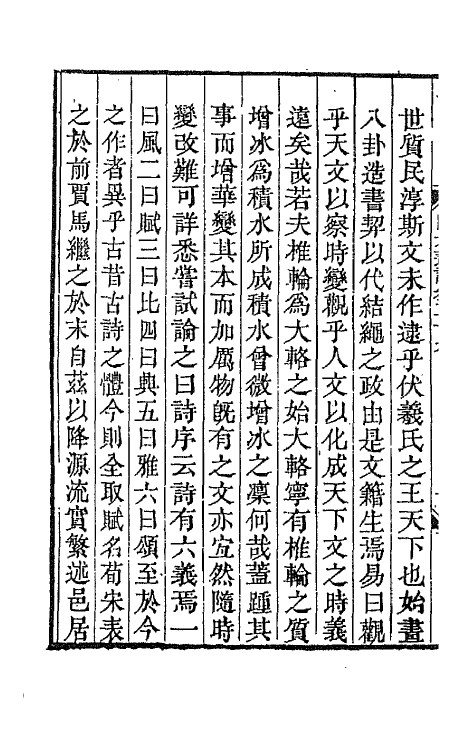 世質民淳斯文未作逮乎伏羲氏之王天下也始畫
八卦造書契以代結繩之政由是文籍生焉易曰觀
乎天文以察時變觀乎人文以化成天下文之時義
遠矣哉若夫椎輪為大輅之始大輅寧有椎輪之質
增冰為積水所成積水曾微增冰之凜何哉蓋踵其
事而增華變其本而加厲物旣有之文亦宜然隨時
變改難可詳悉嘗試論之曰詩序云詩有六義焉一
曰風二曰賦三曰比四曰興五曰雅六曰頌至於今
之作者異乎古昔古詩之體今則全取賦名荀宋表
之於前賈馬繼之於末自茲以降源流實繁述邑居